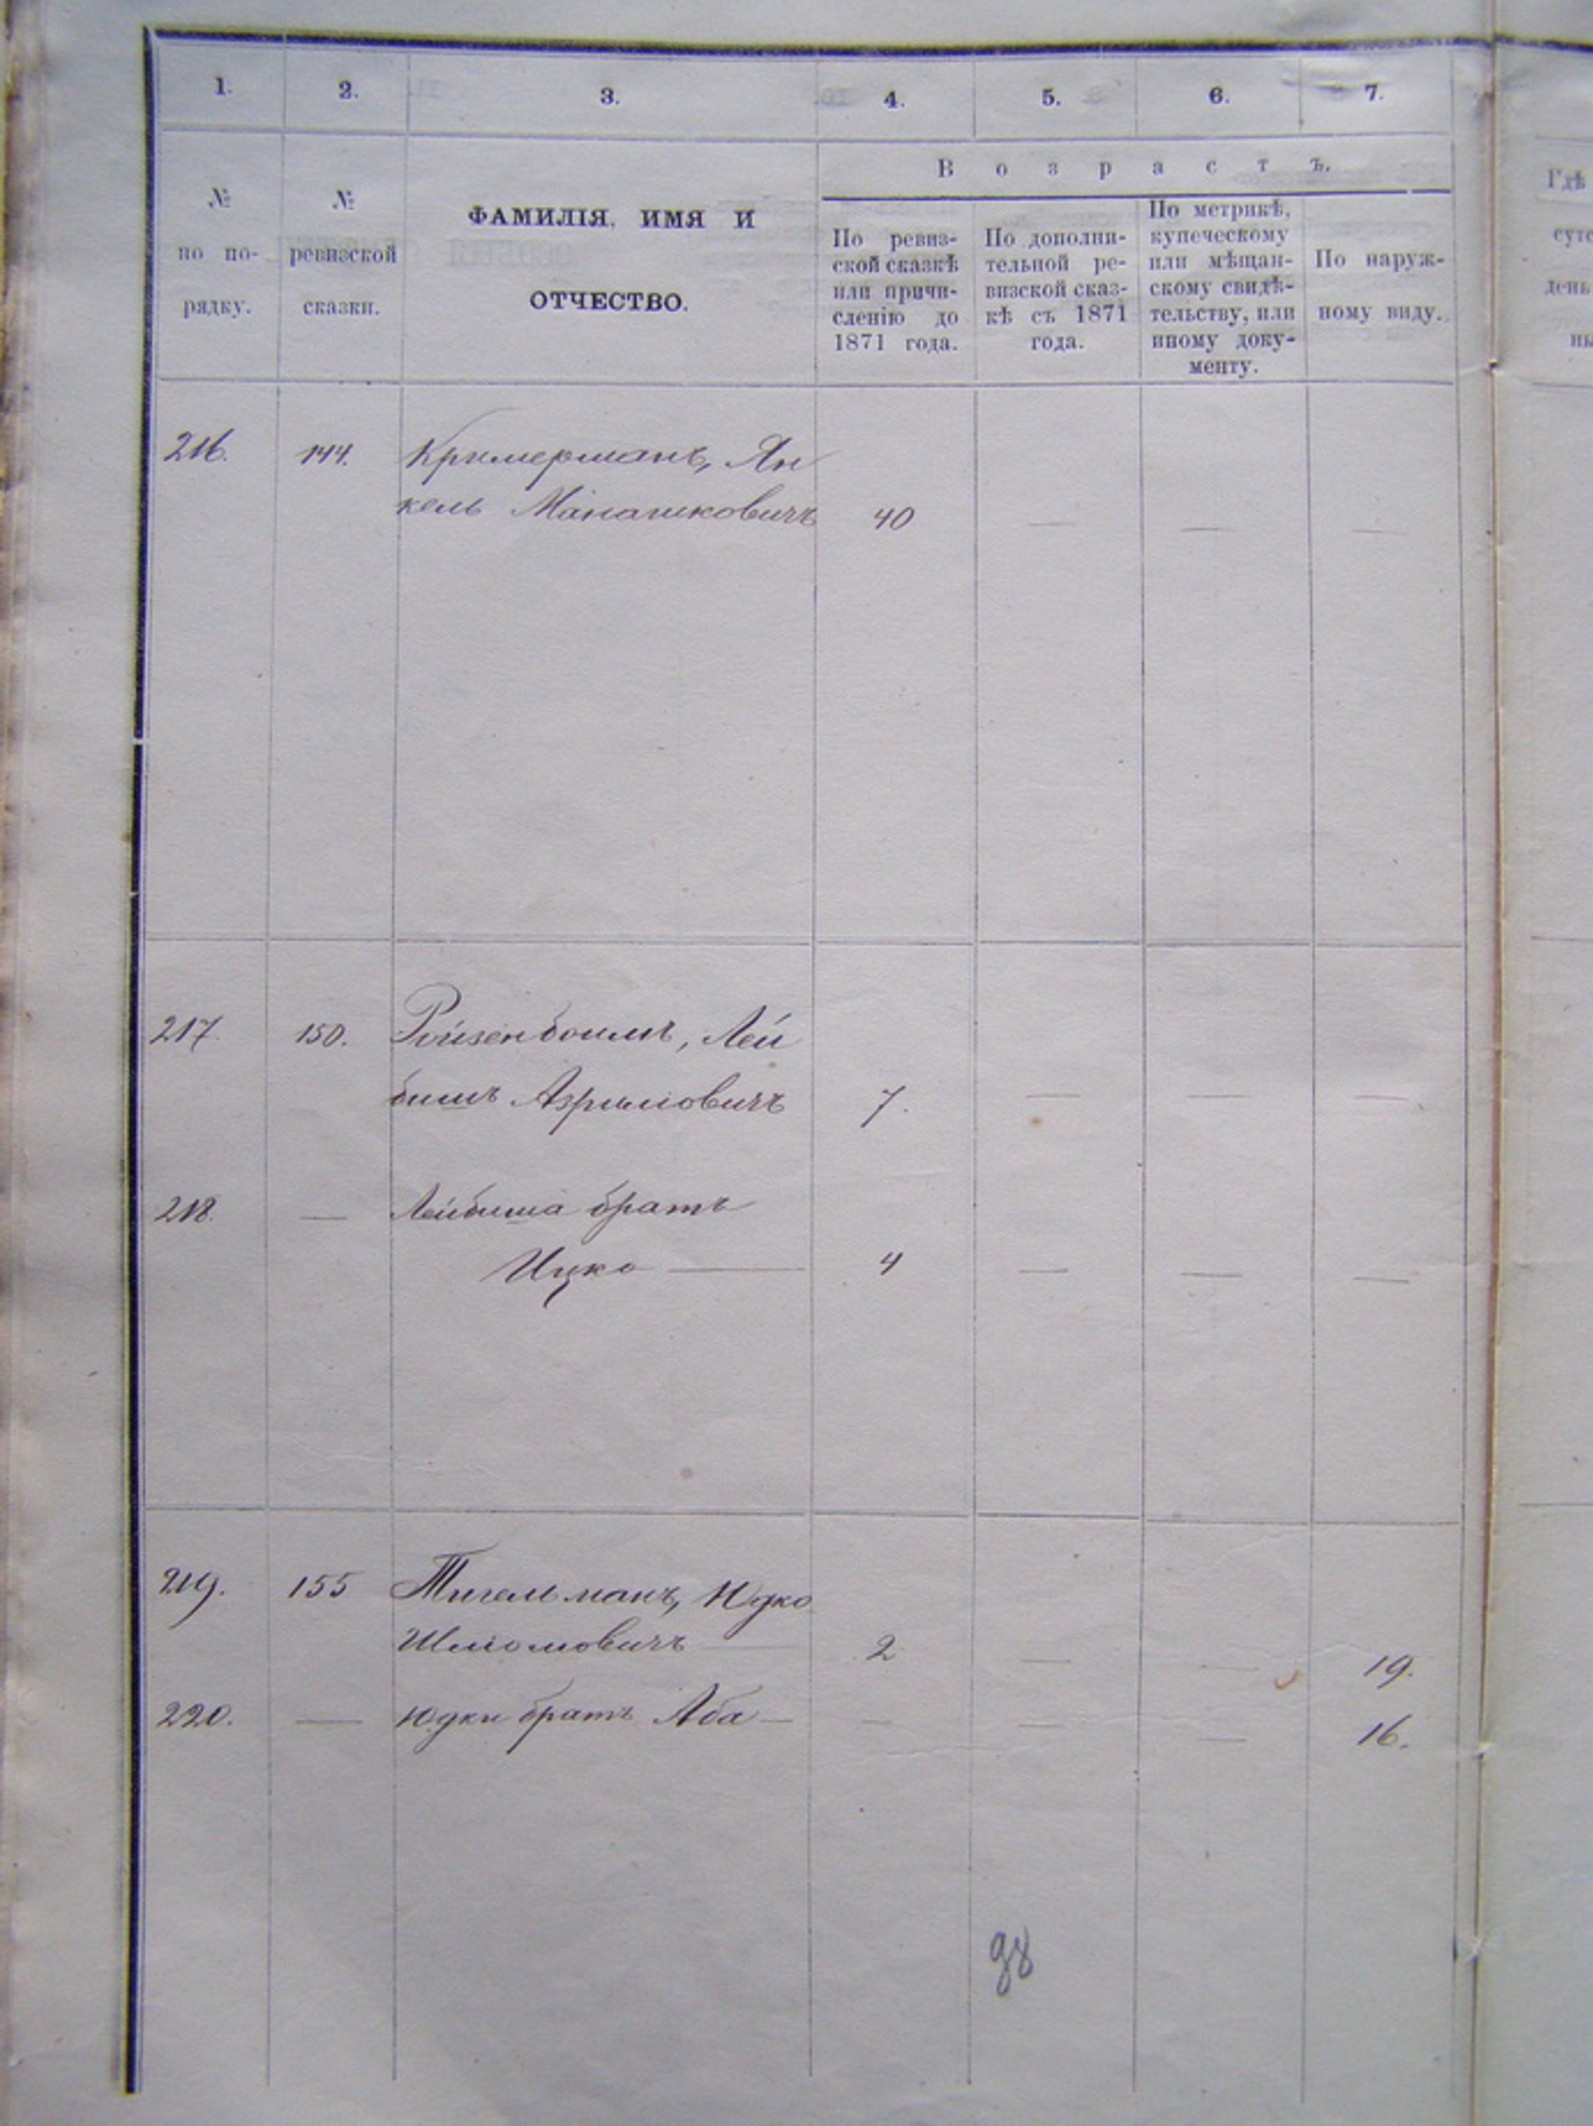 1. 2. 3. 4. 5. 6. 7.
В о з р а с т ъ.
№ по по-
рядку.
№ ревизской
сказки.
ФАМИЛІЯ, ИМЯ И
ОТЧЕСТВО.
По ревиз-
ской сказкѣ
или причи-
сленію до
1871 года.
По дополни-
тельной ре-
визской сказ-
кѣ съ 1871
года.
По метрикѣ,
купеческому
или мѣщан-
скому свидѣ-
тельству, или
иному доку-
менту.
По наруж-
ному виду.
Гдѣ
суте
день
ны
216. 144. Кримерманъ, Ян
кель Манашковичъ 40 — — —
217. 150. Ройзенбоимъ, Лей
бишъ Азриловичъ 7. — — —
218. — Лейбиша братъ
Ицко — 4 — — —
219. 155 Тигельманъ, Юдко
Шліомовичъ — 2 — — 19.
220. — Юдки братъ Аба — — — — 16.
98